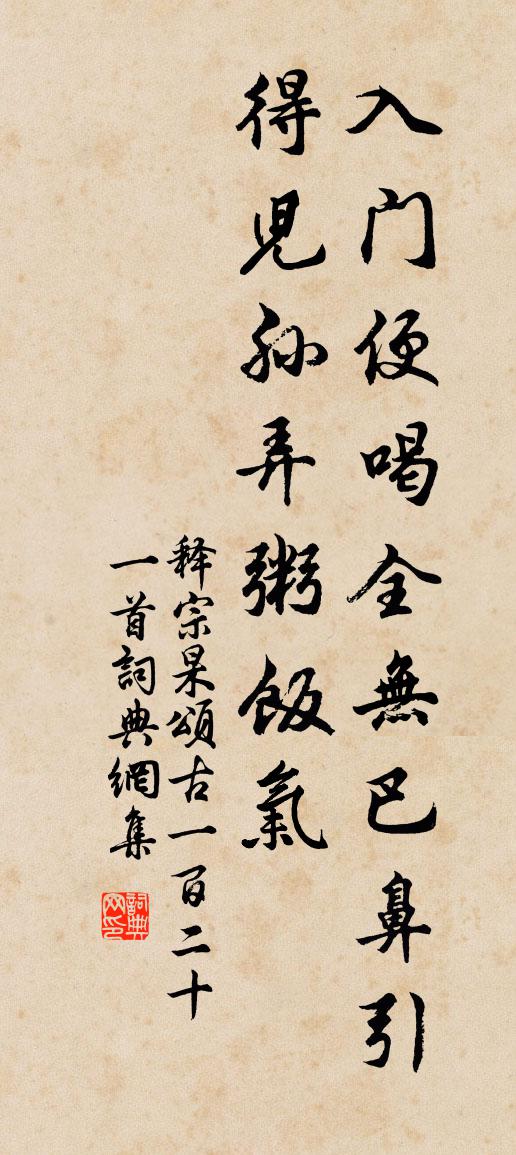 入门便喝全無巴鼻引
得児孙弄粥飯氣
释宗杲頌古一百二十
一首詞典網集
詞典网印